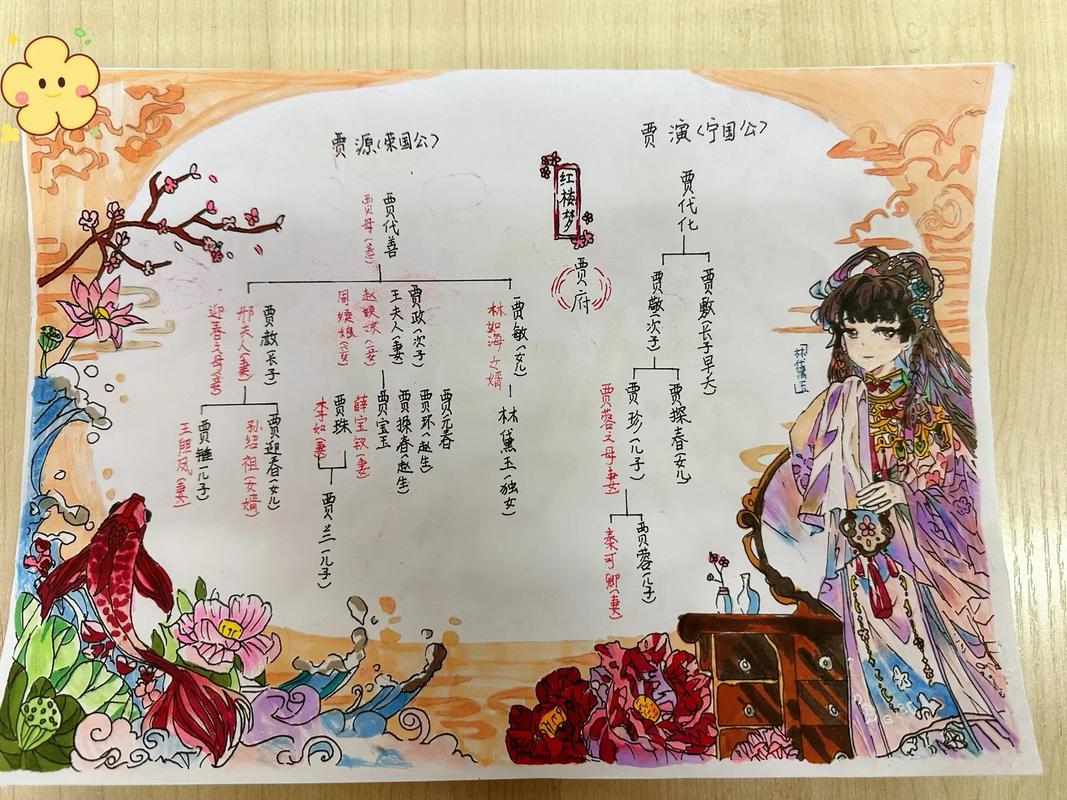 贾源(荣国公)
贾演(宁国公)
红楼梦
贾府
贾代善
贾母(妻)
贾代化
贾赦(长子)
邢夫人(妻)
迎春之母(妾)
贾政(次子)
王夫人(妻)
赵姨娘(妾)
周姨娘(妾)
贾敏(女儿)
林如海 女婿
贾敬(次子)
贾敷(长子早夭)
「林黛玉」
贾琏(儿子)
王熙凤(妻)
贾迎春(女儿)
孙绍祖(女婿)
贾珠
李如(妻)
贾宝玉
薛宝钗(妻)
贾探春(赵生)
贾环(赵生)
贾元春
林黛玉(独女)
贾珍(儿子)
贾蓉之母妻
贾探春(女儿)
贾兰(儿子)
贾蓉(儿子)
秦可卿(妻)